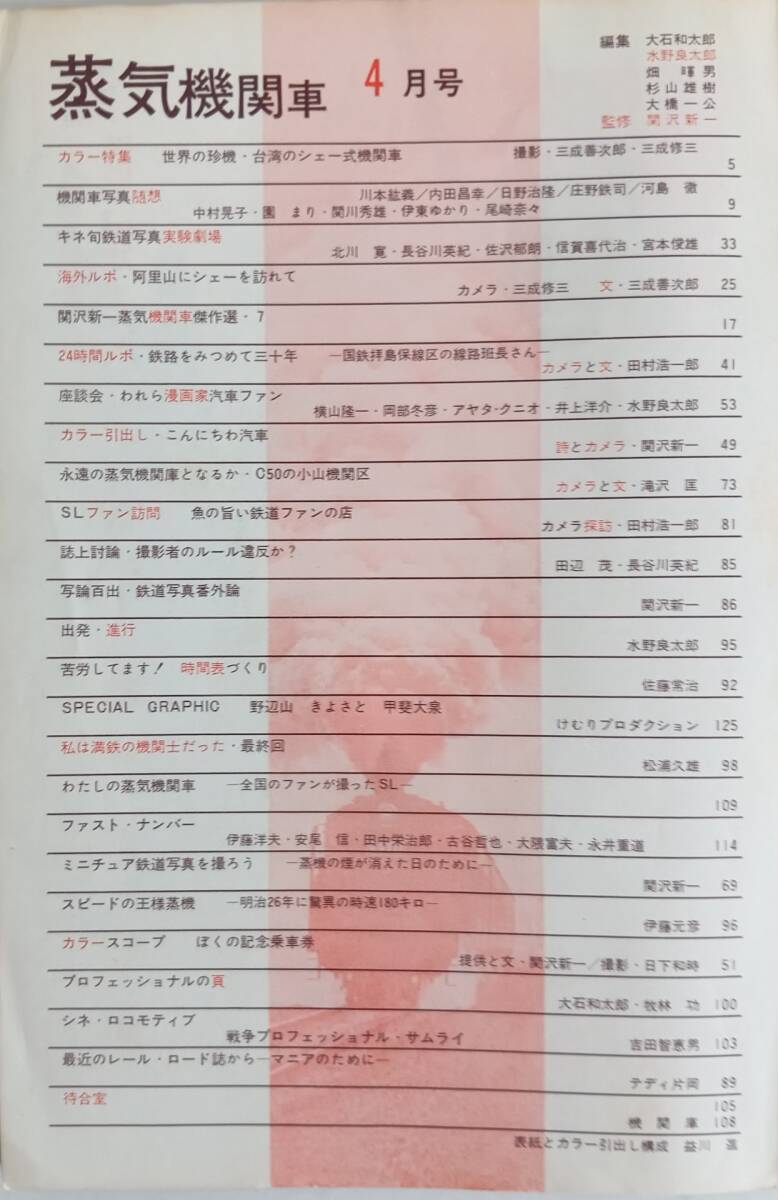 蒸気機関車 4月号
編集 大石和太郎
水野良太郎
畑 暉男
杉山雄樹
大橋一公
監修 関沢新一
カラー特集 世界の珍機・台湾のシェー式機関車 撮影・三成善次郎・三成修三 5
機関車写真随想 川本紘義／内田昌幸／日野治隆／庄野鉄司／河島 徹
中村晃子・園 まり・関川秀雄・伊東ゆかり・尾崎奈々 9
キネ旬鉄道写真実験劇場 北川 寛・長谷川英紀・佐沢郁朗・信賀喜代治・宮本俊雄 33
海外ルポ・阿里山にシェーを訪れて カメラ・三成修三 文・三成善次郎 25
関沢新一蒸気機関車傑作選・7 17
24時間ルポ・鉄路をみつめて三十年 —国鉄拝島保線区の線路班長さん— カメラと文・田村浩一郎 41
座談会・われら漫画家汽車ファン 横山隆一・岡部冬彦・アヤタ・クニオ・井上洋介・水野良太郎 53
カラー引出し・こんにちわ汽車 詩とカメラ・関沢新一 49
永遠の蒸気機関庫となるか・C50の小山機関区 カメラと文・滝沢 匡 73
SLファン訪問 魚の旨い鉄道ファンの店 カメラ探訪・田村浩一郎 81
誌上討論・撮影者のルール違反か？ 田辺 茂・長谷川英紀 85
写論百出・鉄道写真番外論 関沢新一 86
出発・進行 水野良太郎 95
苦労してます！ 時間表づくり 佐藤常治 92
SPECIAL GRAPHIC 野辺山 きよさと 甲斐大泉 けむりプロダクション 125
私は満鉄の機関士だった・最終回 松浦久雄 98
わたしの蒸気機関車 —全国のファンが撮ったSL— 109
ファスト・ナンバー 伊藤洋夫・安尾 信・田中栄治郎・古谷哲也・大隈富夫・永井重道 114
ミニチュア鉄道写真を撮ろう —蒸機の煙が消えた日のために— 関沢新一 69
スピードの王様蒸機 —明治26年に驚異の時速180キロ— 伊藤元彦 96
カラースコープ ぼくの記念乗車券 提供と文・関沢新一／撮影・日下和時 51
プロフェッショナルの頁 大石和太郎・牧林 功 100
シネ・ロコモティブ 戦争プロフェッショナル・サムライ 吉田智恵男 103
最近のレール・ロード誌から—マニアのために— テディ片岡 89
待合室 105
機関庫 108
表紙とカラー引出し構成 益川 進